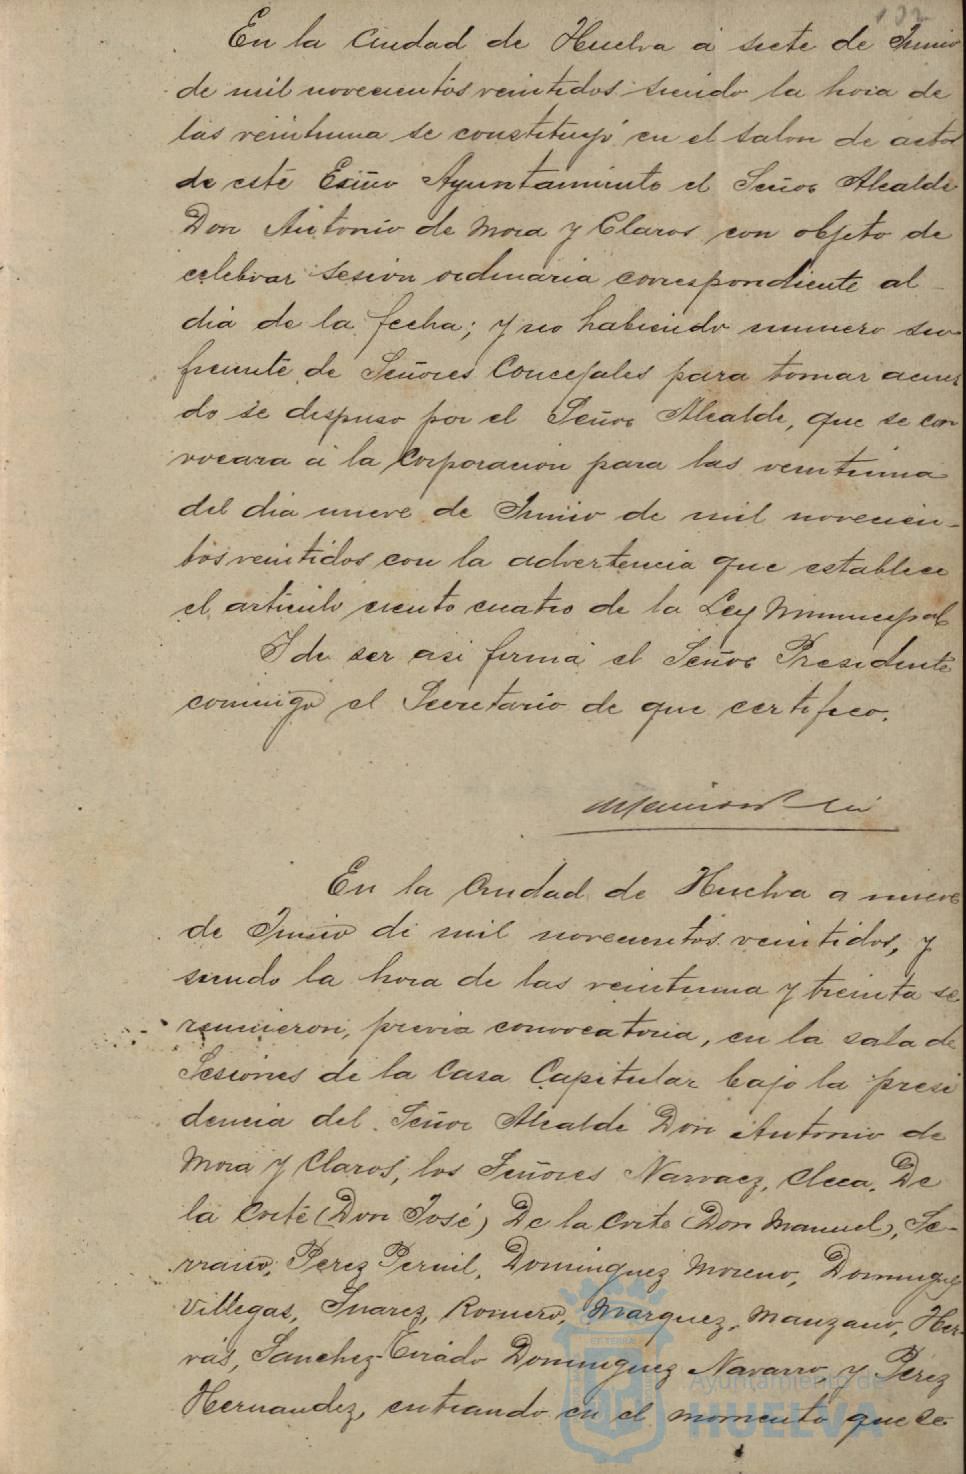 132
En la Ciudad de Huelva á siete de Junio
de mil novecientos veintidos siendo la hora de
las veintiuna se constituyó en el salon de actos
de este Exmo Ayuntamiento el Señor Alcalde
Don Antonio de Mora y Claros con objeto de
celebrar sesion ordinaria correspondiente al
dia de la fecha; y no habiendo numero su-
ficiente de Señores Concejales para tomar acuer
do se dispuso por el Señor Alcalde, que se con
vocara á la Corporacion para las veintiuna
del dia nueve de Junio de mil novecien-
tos veintidos con la advertencia que establece
el articulo ciento cuatro de la Ley Municipal
Y de ser asi firma el Señor Presidente
conmigo el Secretario de que certifico.
En la Ciudad de Huelva a nueve
de Junio de mil novecientos veintidos, y
siendo la hora de las veintiuna y treinta se
reunieron, previa convocatoria, en la sala de
Sesiones de la Casa Capitular bajo la presi
dencia del Señor Alcalde Don Antonio de
Mora y Claros, los Señores Narvaez, De
la Corte (Don José) De la Corte (Don Manuel), Se-
rrano, Perez Pernil, Dominguez Moreno, Dominguez
Villegas, Suarez, Romero, Marquez, Manzano, Her-
vás, Sanchez-Tirado Dominguez Navarro y Pérez
Hernandez, entrando en el momento que se
Ayuntamiento de
HUELVA